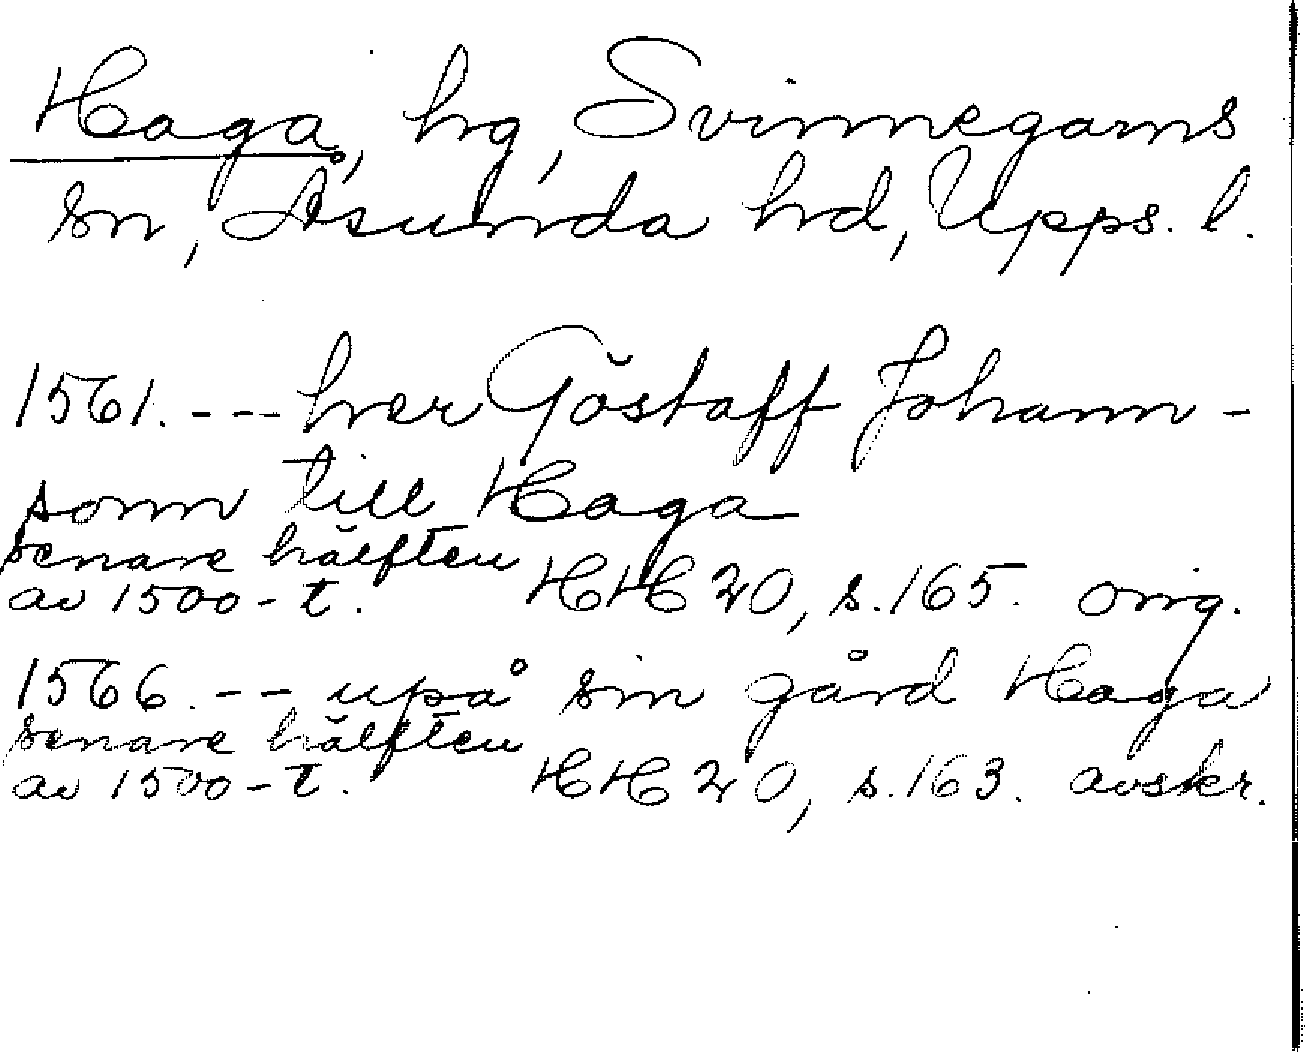 Haga, hg, Svinnegarns
sn, Åsunda hd, Upps. l.
1561. --- her Göstaff Johann-
sonn till Haga
senare hälften
av 1500-t. HH 20, s. 165. orig.
1566. -- upå sin gård Haga
senare hälften
av 1500-t. HH 20, s. 163. avskr.